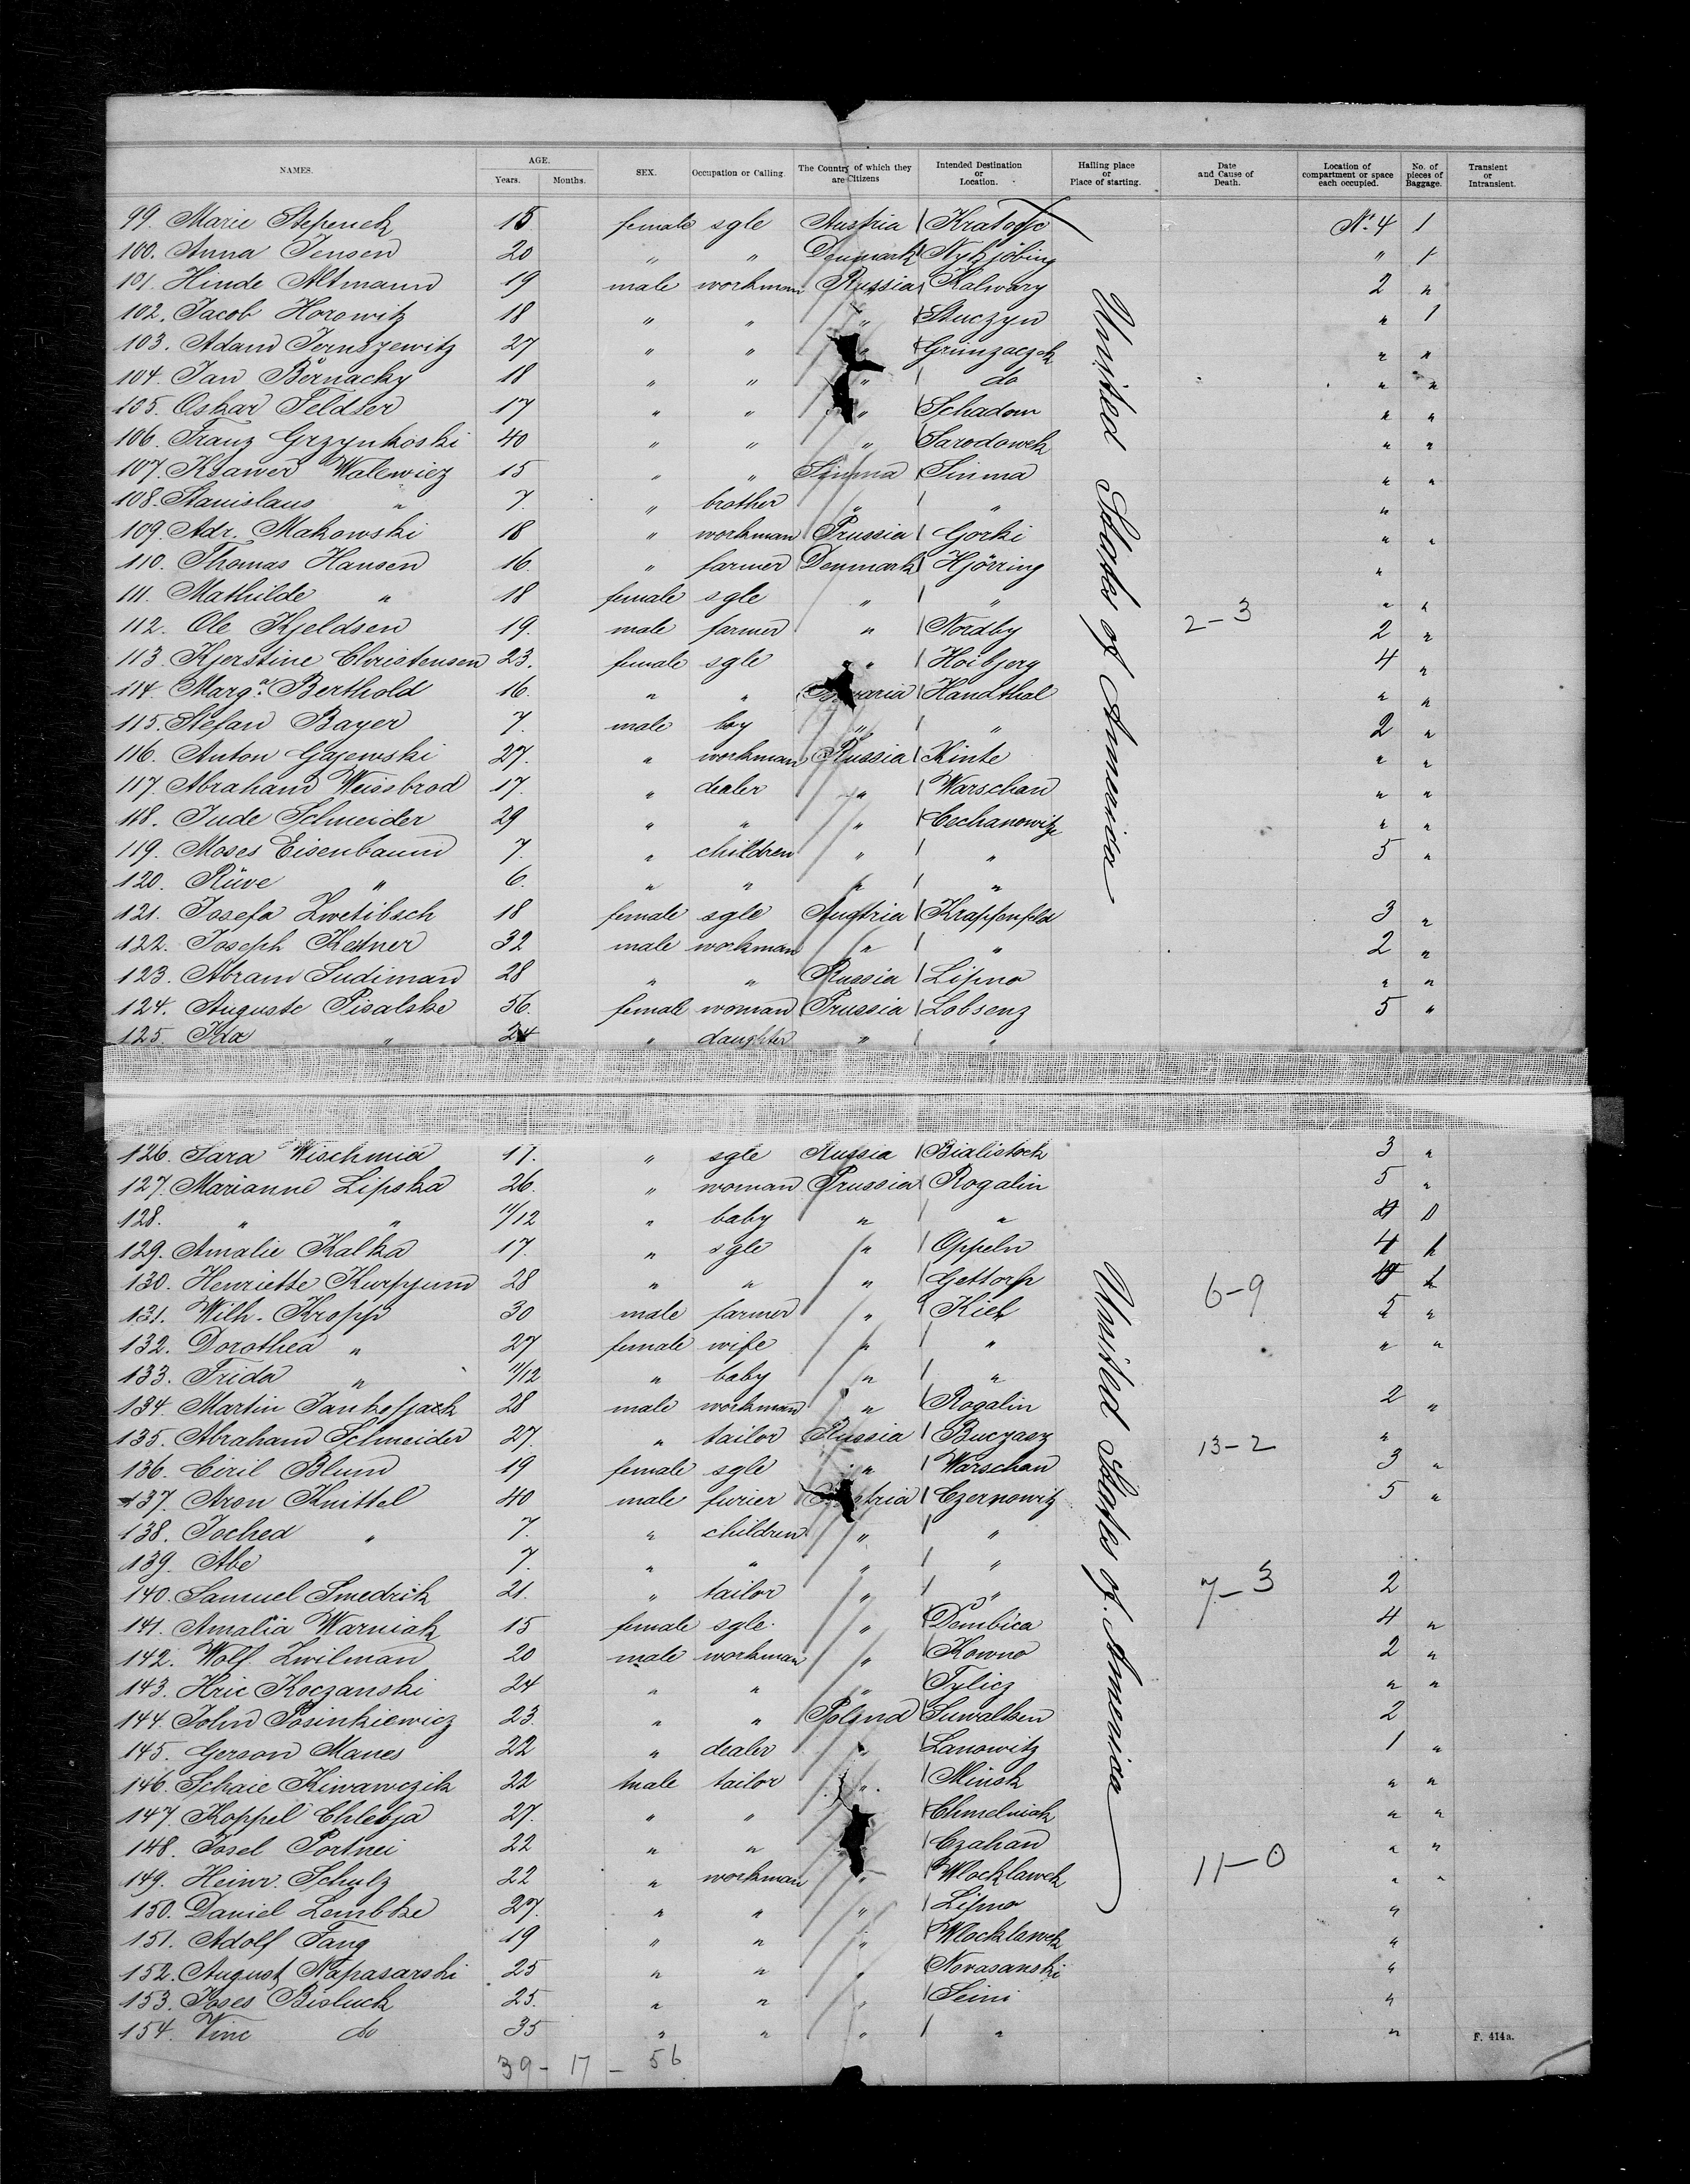 NAMES. AGE. Years. Months. SEX. Occupation or Calling. The Country of which they are Citizens Intended Destination or Location. Hailing place or Place of starting. Date and Cause of Death. Location of compartment or space each occupied. No. of pieces of Baggage. Transient or Intransient.
99. Marie Stepenek 15 female sgle Austria No. 4 1
100. Anna Jensen 20 " " Denmark Nykjöbing " 1
101. Hinde Altmann 19 male workman Russia Kalwary 2 "
102. Jacob Horowitz 18 " " " Stuczyn " 1
103. Adam 27 " " " " "
104. Jan Bernacky 18 " " " do " "
105. Oskar Feldser 17 " " " Schadow " "
106. Franz Grzynkoski 40 " " " Sarodowek " "
107. Ksawer Walewicz 15 " " Sinma Sinma " "
108. Stanislaus " 7. " brother " " "
109. Adr. Makowski 18 " workman Prussia Gorki " "
110. Thomas Hansen 16. " farmer Denmark Hjörring "
111. Mathilde " 18 female sgle " " " "
112. Ole Kjeldsen 19. male farmer " Nordby 2-3 2 "
113. Kjerstine Christensen 23. female sgle " Hoibjerg 4 "
114. Marg.a Berthold 16. " " Bavaria Handthal " "
115. Stefan Bayer 7. male boy " " 2 "
116. Anton Gajewski 27. " workman Russia Kinte " "
117. Abraham Weissbrod 17. " dealer " Warschau " "
118. Jude Schneider 29 " " " Cechanowitz " "
119. Moses Eisenbaum 7. " children " " 5 "
120. Rüve " 6. " " " "
121. Josefa Zwetibsch 18 female sgle Austria 3 "
122. Joseph Kestner 32 male workman " " 2 "
123. Abram Sudiman 28 " " Russia Lipno " "
124. Auguste Pisalske 56. female woman Prussia Lobsenz 5 "
125. Ida " 24 " daughter " "
United States of America
126. Sara Wischmia 17. " sgle Russia Bialistock 3 "
127. Marianne Lipska 26. " woman Prussia Rogalin 5 "
128. " " 11/12 " baby " " 0
129. Amalie Kalka 17. " sgle " Oppeln 4
130. Henriette Kurpjum 28 " " " Gettorf 6-9
131. Wilh. Kropp 30 male farmer " Kiel 5 "
132. Dorothea " 27 female wife " " " "
133. Frida " 11/12 " baby " "
134. Martin 28 male workman " Rogalin 2 "
135. Abraham Schneider 27. " tailor Russia Buczasz 13-2 "
136. Ciril Blum 19 female sgle " Warschau 3 "
137. Aron Knittel 40 male furier Austria Czernowitz 5 "
138. Joched " 7. " children " "
139. Abe 7. " " " "
140. Samuel Smedrik 21. " tailor " " 7-3 2
141. Amalia Warniak 15 female sgle. " Dembica 4 "
142. Wolf Zwilman 20 male workman " Kowno 2 "
143. Hric Koczanski 24 " " " Tylicz " "
144. John Posinkiewicz 23. " " Poland Suwalken 2
145. Gerson Manes 22 " dealer " Lanowitz 1 "
146. Schaie Kiwawczik 22 male tailor " Minsk " "
147. Koppel Chlebja 27. " " Chmelniak " "
148. Josel Portnei 22 " " Czahan " "
149. Heinr. Schulz 22 " workman " Wlocklawek 11-0 " "
150. Daniel Lembke 27. " " " Lipno "
151. Adolf Fang 19 " " " Wlocklawek "
152. August Napasarski 25 " " " Novasanski "
153. Joses Bisluck 25. " " " Seini "
154. Vinc do 35 " " " " "
United States of America
F. 414a.
39 - 17 - 56